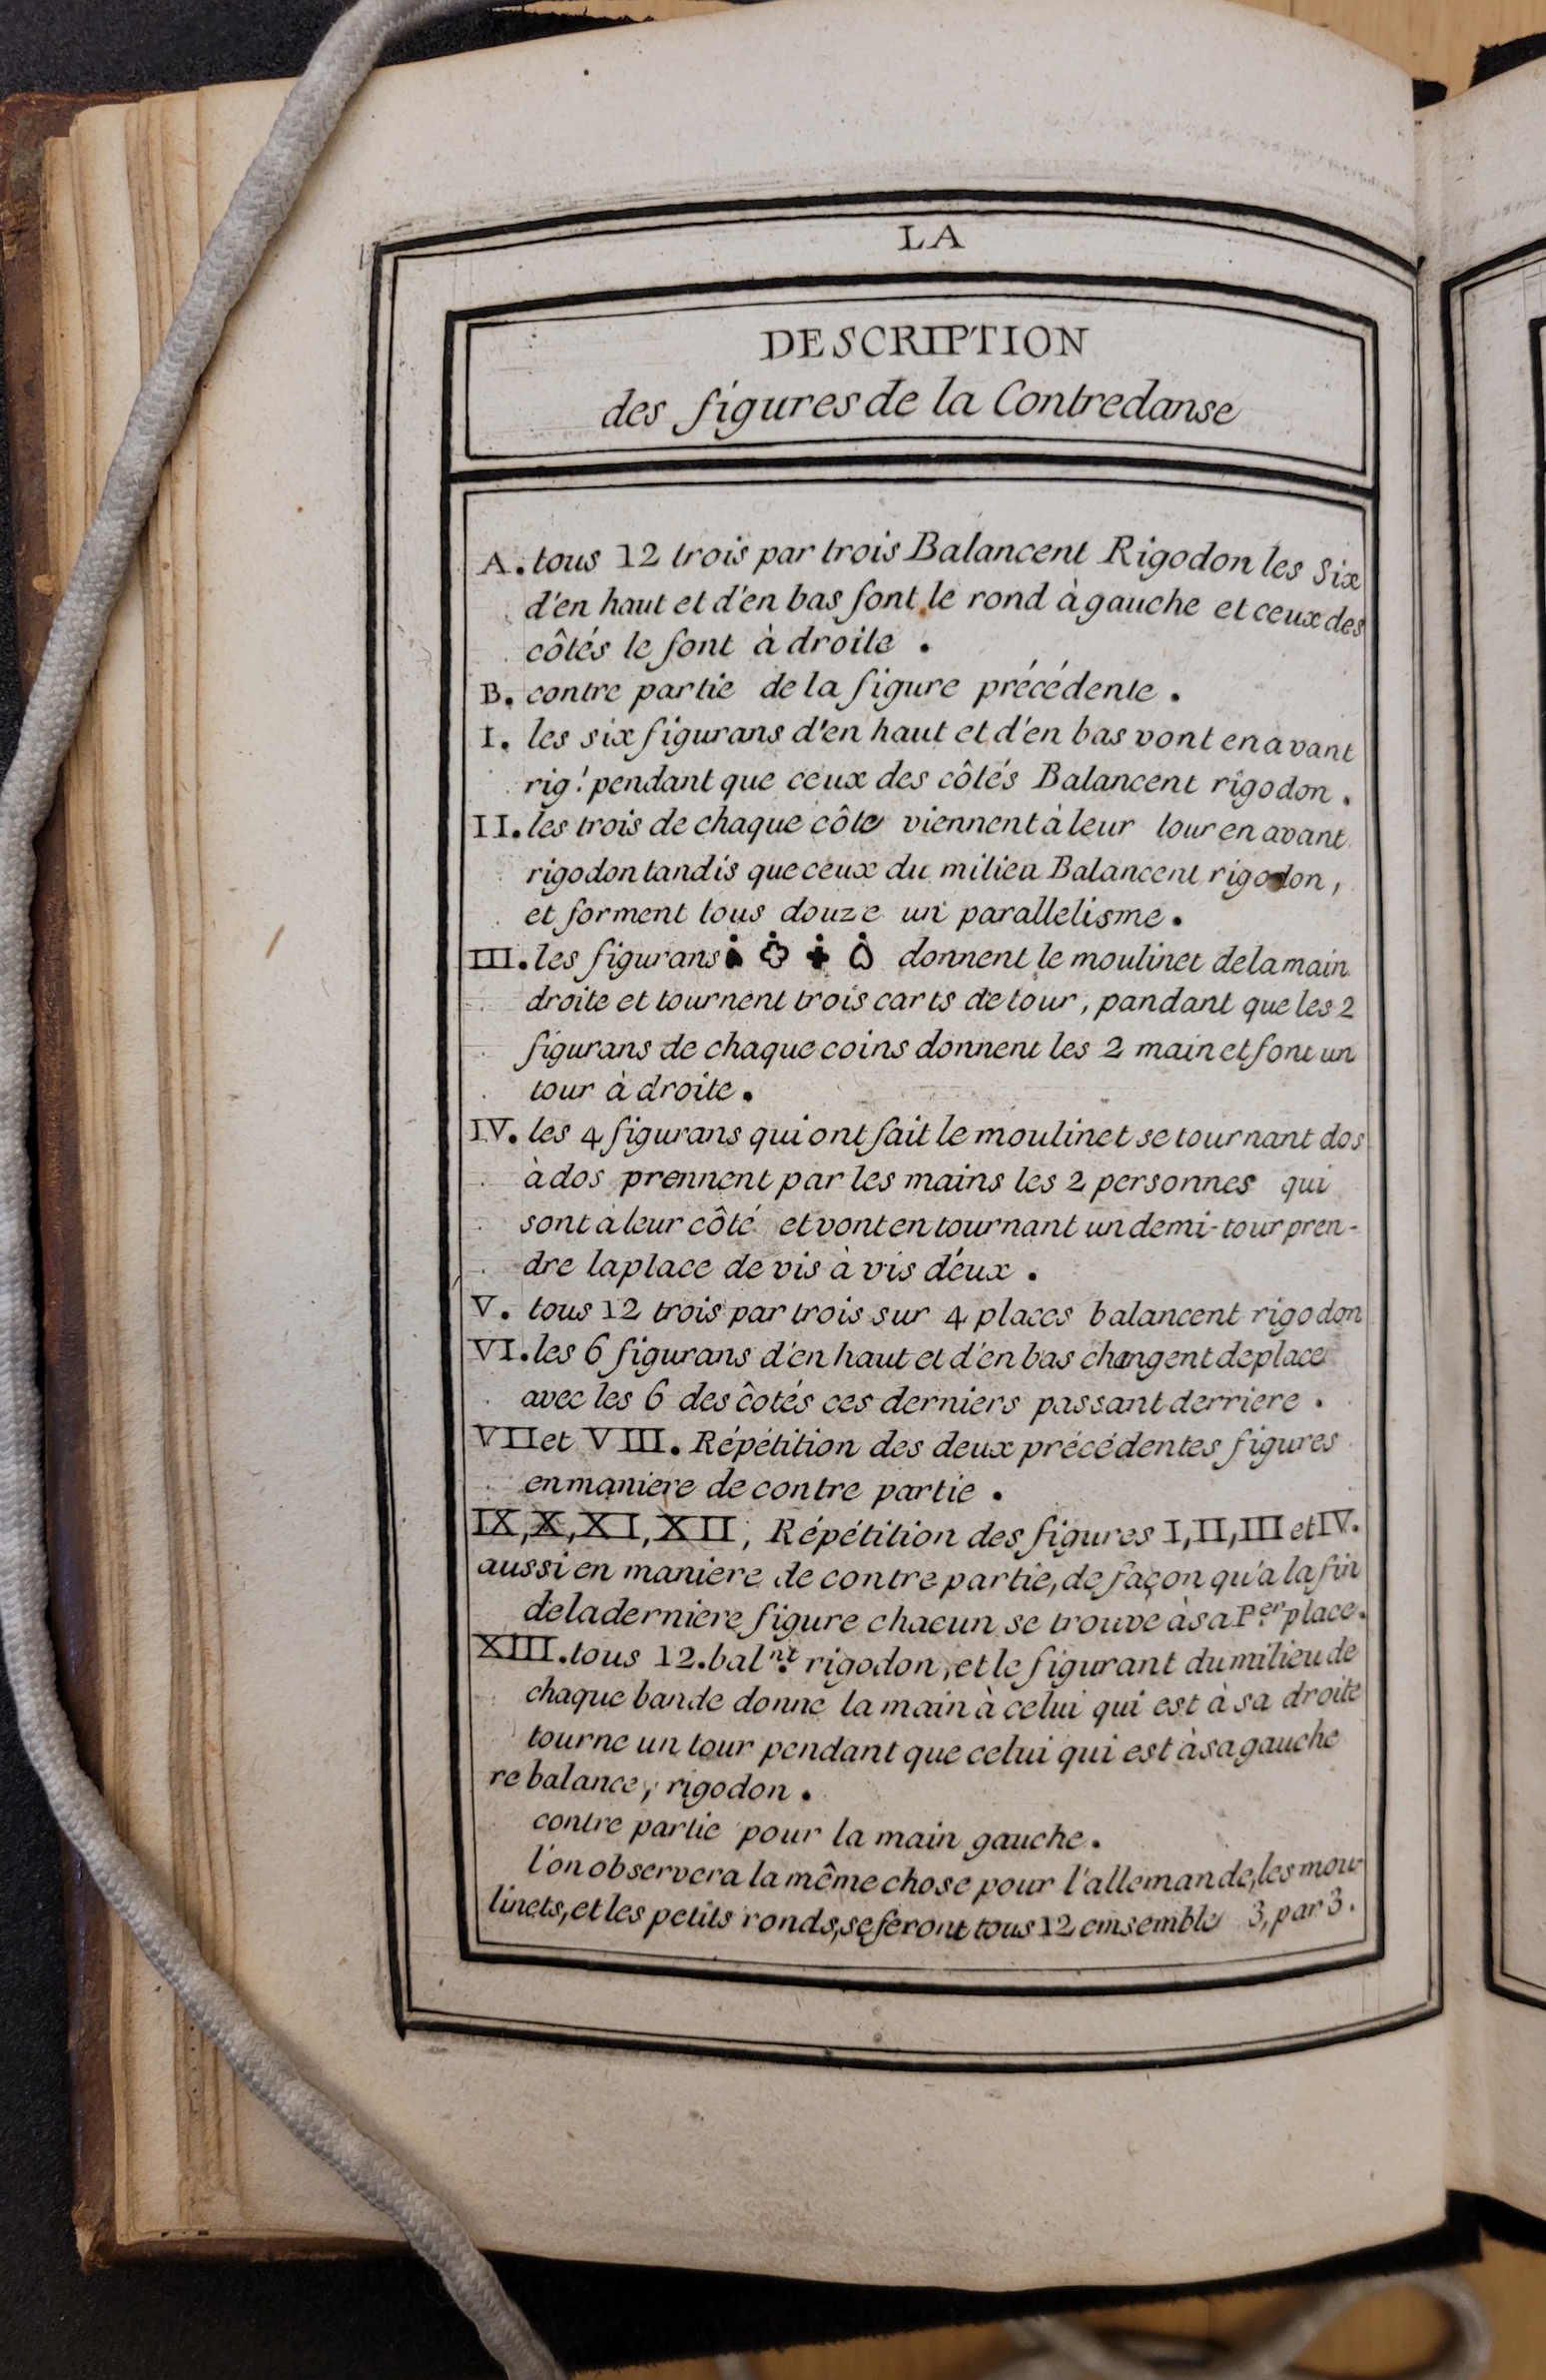 LA
DESCRIPTION
des figures de la Contredanse
A. tous 12 trois par trois Balancent Rigodon les Six
d'en haut et d'en bas font le rond à gauche et ceux des
côtés le font à droite .
B. contre partie de la figure précédente .
I. les six figurans d'en haut et d'en bas vont en avant
rig! pendant que ceux des côtés Balancent rigodon .
II. les trois de chaque côté viennent à leur tour en avant
rigodon tandis que ceux du milieu Balancent rigodon ,
et forment tous douze un parallelisme .
III. les figurans donnent le moulinet de la main
droite et tournent trois carts de tour , pandant que les 2
figurans de chaque coins donnent les 2 main et font un
tour à droite .
IV. les 4 figurans qui ont fait le moulinet se tournant dos
à dos prennent par les mains les 2 personnes qui
sont à leur côté et vont en tournant un demi-tour pren-
dre la place de vis à vis d'eux .
V. tous 12 trois par trois sur 4 places balancent rigodon
VI. les 6 figurans d'en haut et d'en bas changent de place
avec les 6 des côtés ces derniers passant derriere .
VII et VIII. Répétition des deux précédentes figures
en maniere de contre partie .
IX, X, XI, XII, Répétition des figures I, II, III et IV.
aussi en maniere de contre partie, de façon qu'a la fin
de la derniere figure chacun se trouve à sa P.er place.
XIII. tous 12. bal.nt rigodon, et le figurant du milieu de
chaque bande donne la main à celui qui est à sa droite
tourne un tour pendant que celui qui est à sa gauche
rebalance, rigodon .
contre partie pour la main gauche .
l'on observera la même chose pour l'allemande, les mou-
linets, et les petits ronds, se feront tous 12 emsemble 3, par 3 .